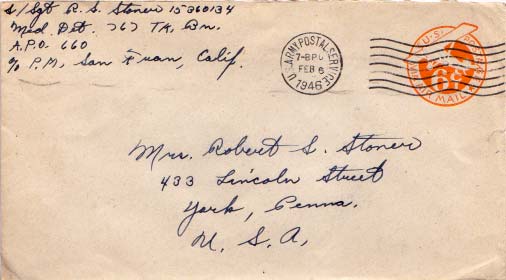 S/Sgt R. S. Stoner 15360134
Med. Det. 767 Tk. Bn.
A.P.O. 660
c/o P.M. San Fran, Calif.
U.S. ARMY POSTAL SERVICE
FEB 6
1946
U.S.
6¢
AIR MAIL
Mrs. Robert S. Stoner
433 Lincoln Street
York, Penna.
U. S. A.